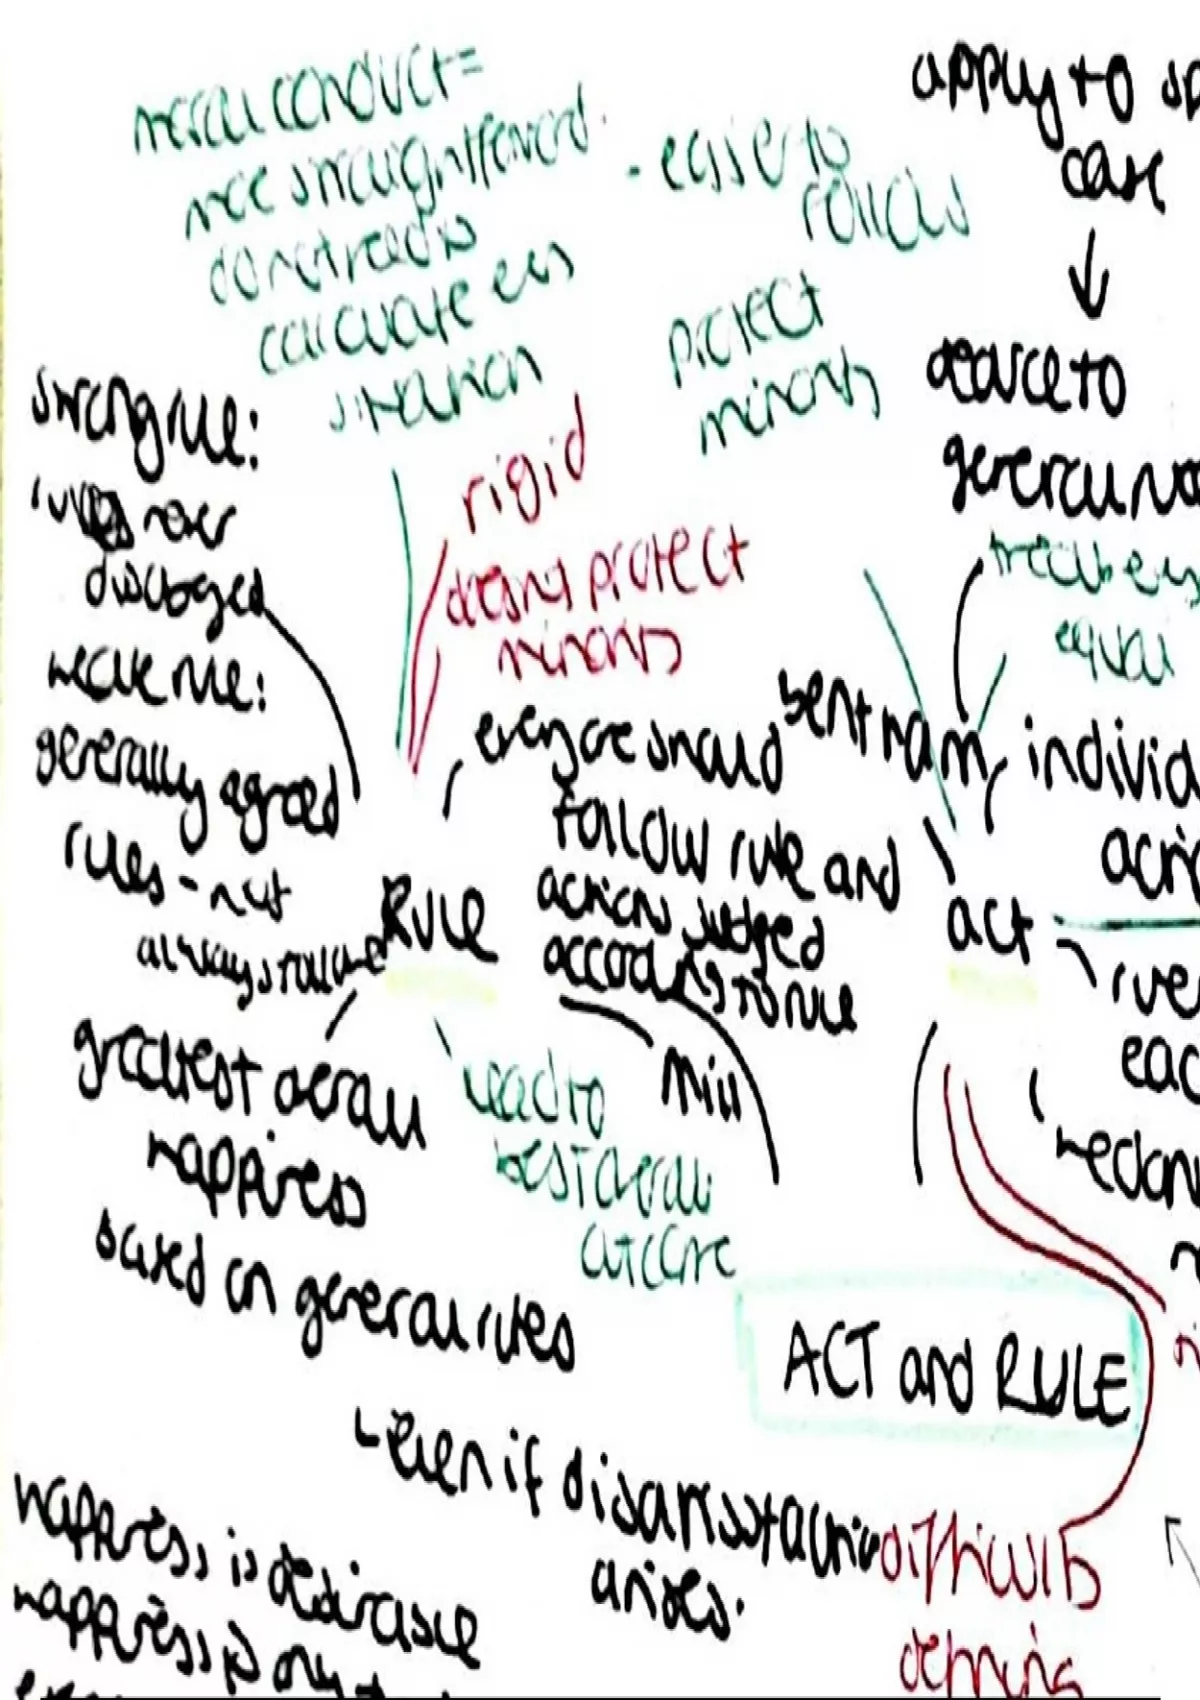 moral conduct =
more straightforward.
do not need to
calculate every
situation
- easier to
follow
protect
minority
apply to
case
↓
general
treat
equal
strong rule:
rules never
disobeyed
weak rule:
generally agreed
rules - not
always followed
rigid
doesn't protect
minority
everyone should
follow rule and
actions judged
according to rule
RULE
bentham
act
each
greatest overall
happiness
based on general rules
- even if
arises.
lead to
best overall
outcome
mill
ACT and RULE
happiness is desirable
happiness is only
difficulty
defining